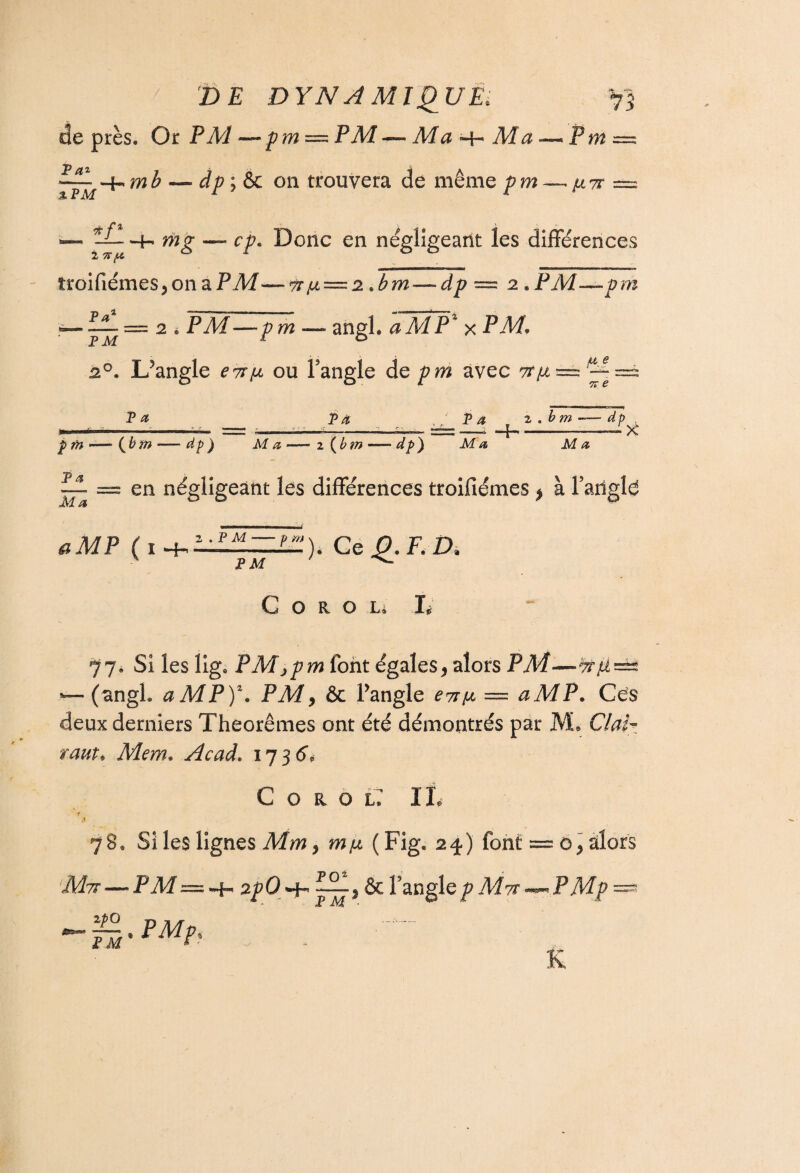 DE DYNAMIQUE. 73
de près. Or PM — pm = PM — Ma + Ma — Pm =
Pa²/2PM + mb — dp ; & on trouvera de même pm — μπ =
— πf²/2πμ + mg — cp. Donc en négligeant les différences
troisiémes, on a PM — πμ = 2 . bm — dp = 2 . PM — pm
— Pa²/PM = 2 . PM — pm — angl. aMP² × PM.
2°. L’angle eπμ ou l’angle de pm avec πμ = μe/πe =
Pa/(pm — (bm — dp)) = Pa/(Ma — 2 (bm — dp)) = Pa/Ma + 2 . bm — dp/Ma ×
Pa/Ma = en négligeant les différences troisiémes, à l’anglé
aMP (1 + 2 . PM — pm/PM). Ce Q. F. D.
COROL. I.
77. Si les lig. PM, pm sont égales, alors PM — πμ =
— (angl. aMP)². PM, & l’angle eπμ = aMP. Ces
deux derniers Theorêmes ont été démontrés par M. Clai-
raut. Mem. Acad. 1736.
COROL. II.
78. Si les lignes Mm, mμ (Fig. 24) sont = 0, alors
Mπ — PM = + 2pO + PO²/PM, & l’angle p Mπ — PMp =
— 2pO/PM . PMp.
K